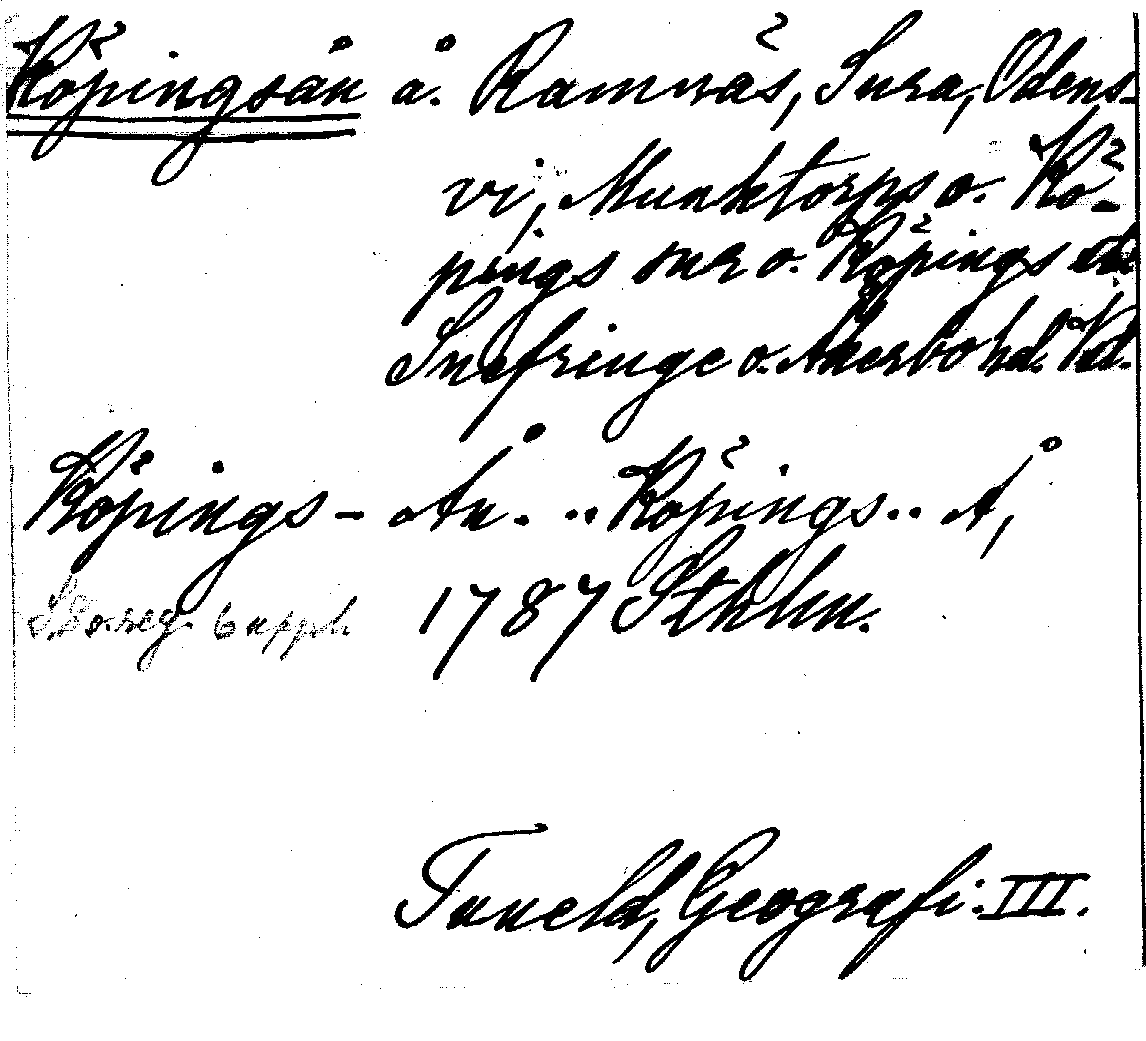 Köpingsån å. Ramnäs, Sura, Odens-
vi, Munktorps o. Kö-
pings snr o. Köpings
Snefringe o. Åkerbo hd. Vstl.
Köpings-Ån. .. Köpings.. Å,
1787 Sthlm.
6 uppl.
Tuneld, Geografi: III.